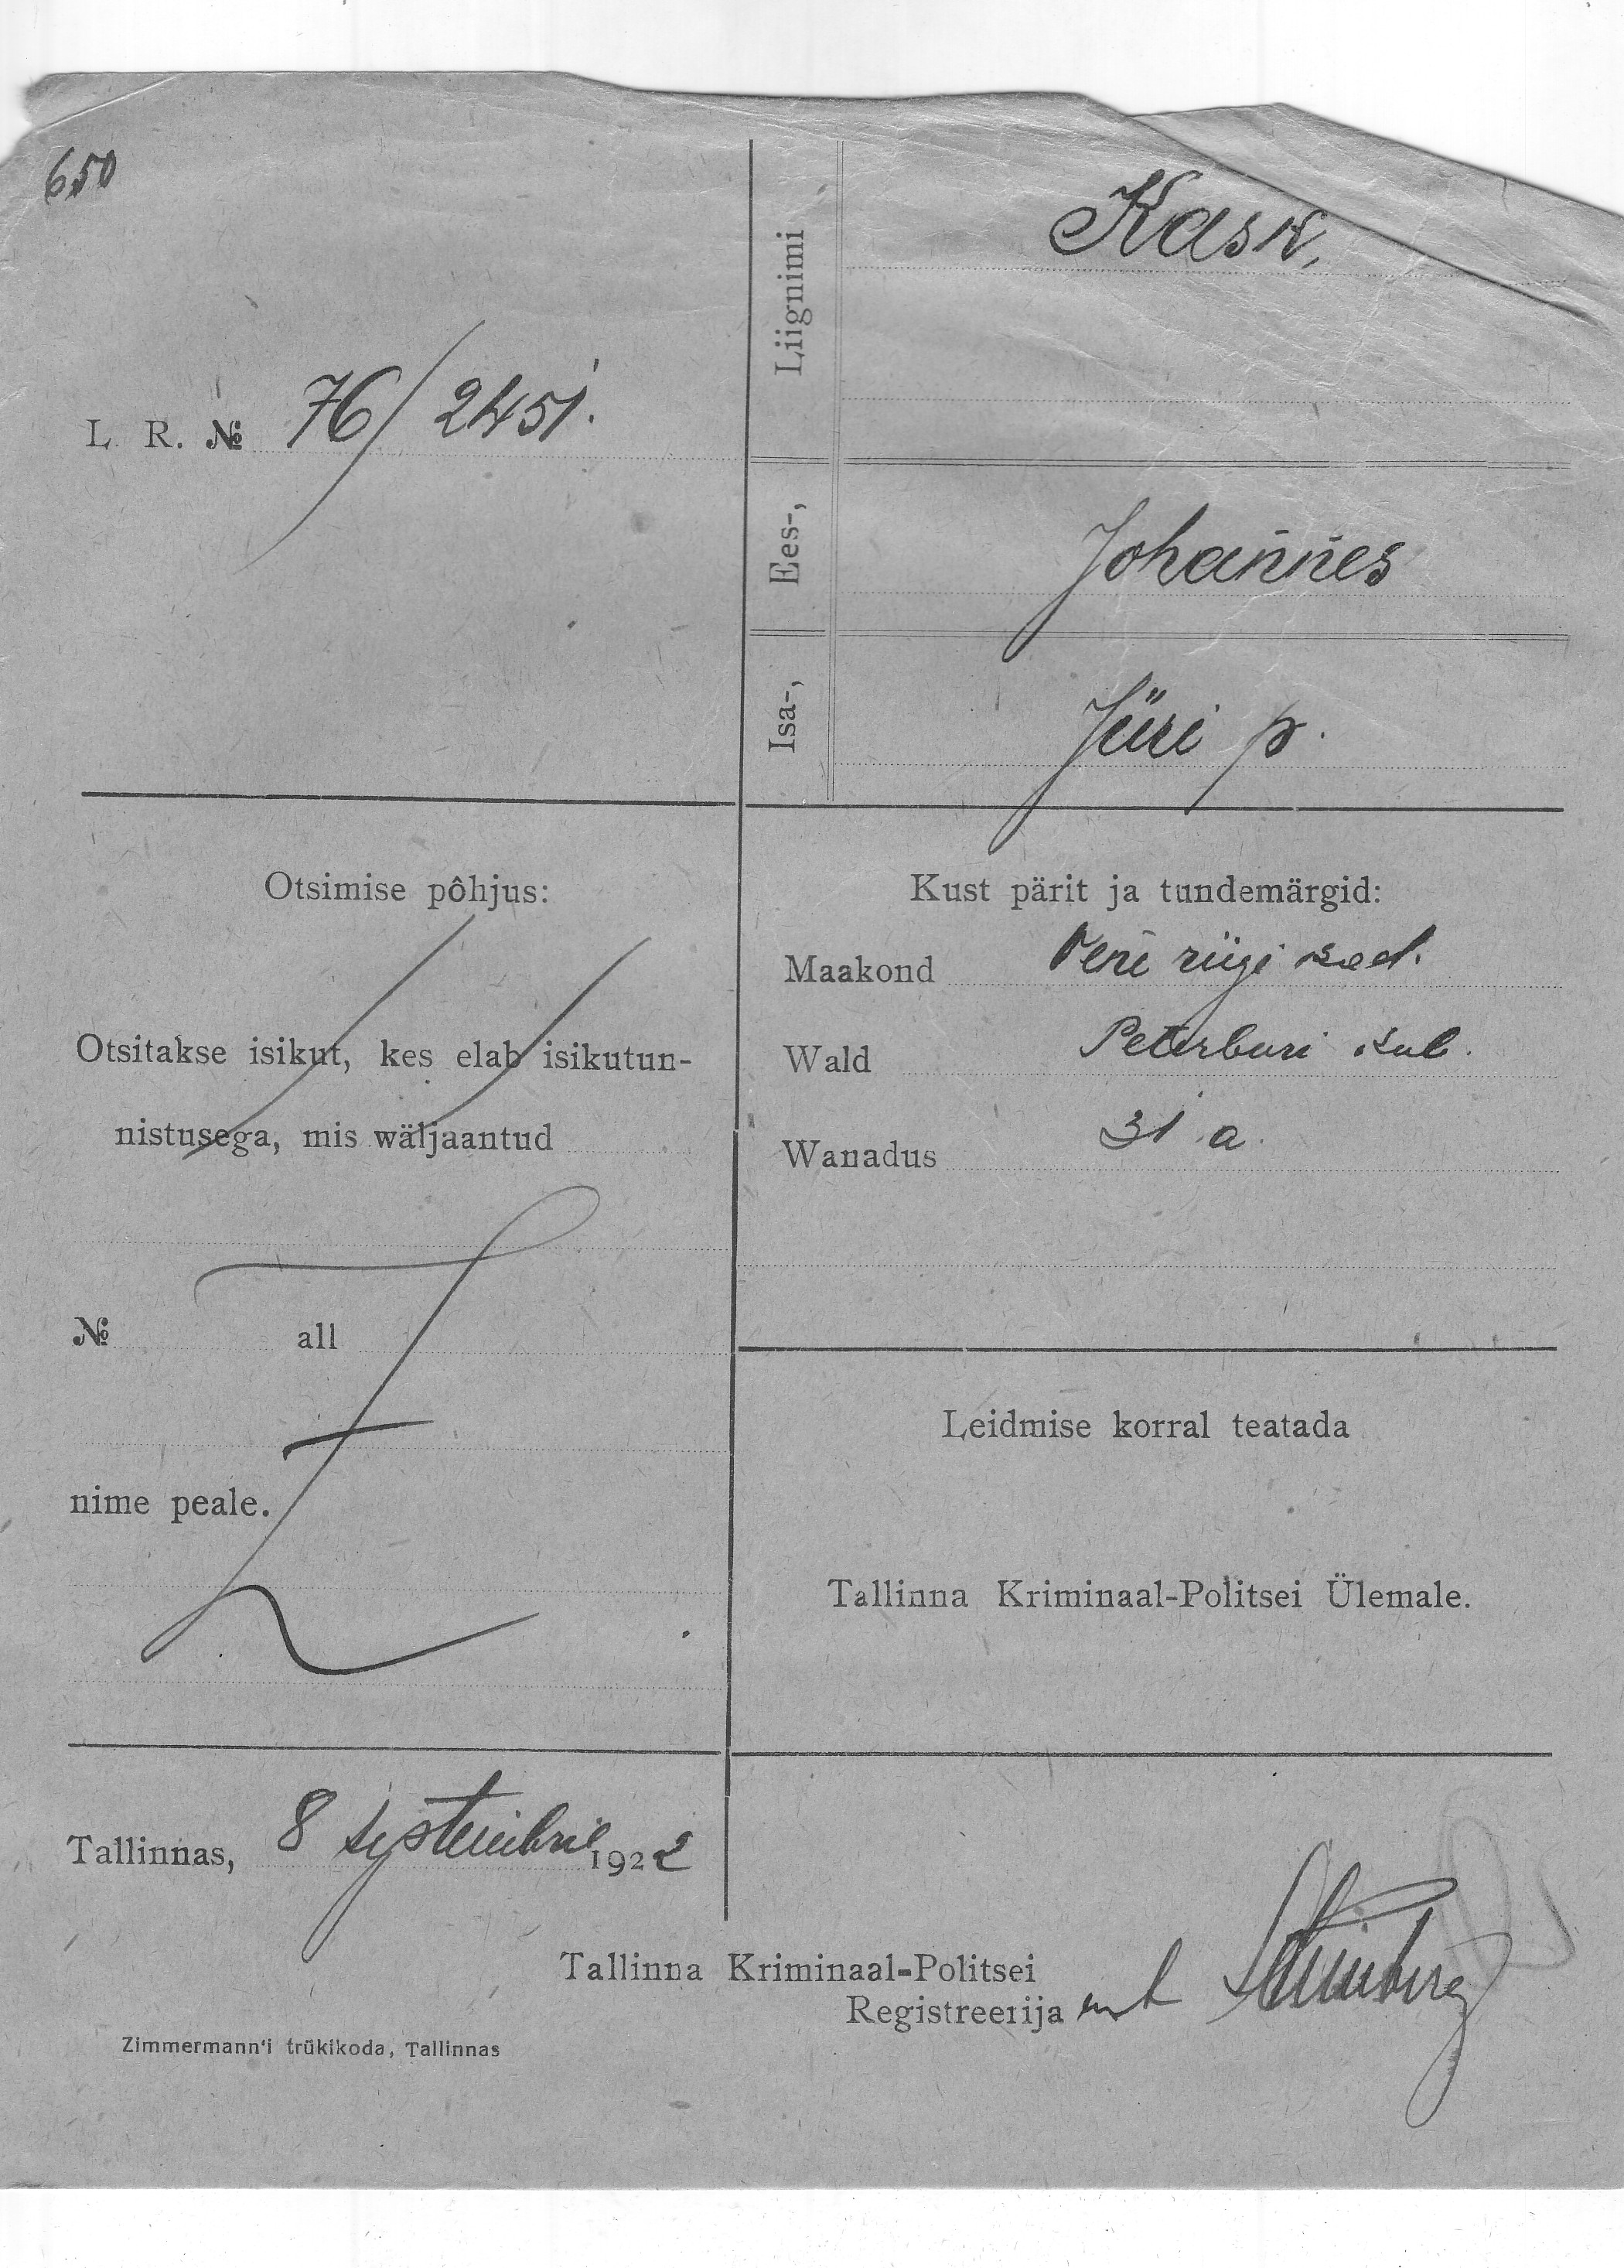 650
L. R. № 76/2451.
Liignimi
Kask,
Ees-,
Johannes
Isa-,
Jüri p.
Otsimise põhjus:
Otsitakse isikut, kes elab isikutun-
nistusega, mis wäljaantud
№ all
nime peale.
Kust pärit ja tundemärgid:
Maakond Vene riigi
Wald Peterburi kub.
Wanadus 31 a.
Leidmise korral teatada
Tallinna Kriminaal-Politsei Ülemale.
Tallinnas, 8 septembril 1922
Tallinna Kriminaal-Politsei
Registreerija
Zimmermann'i trükikoda, Tallinnas